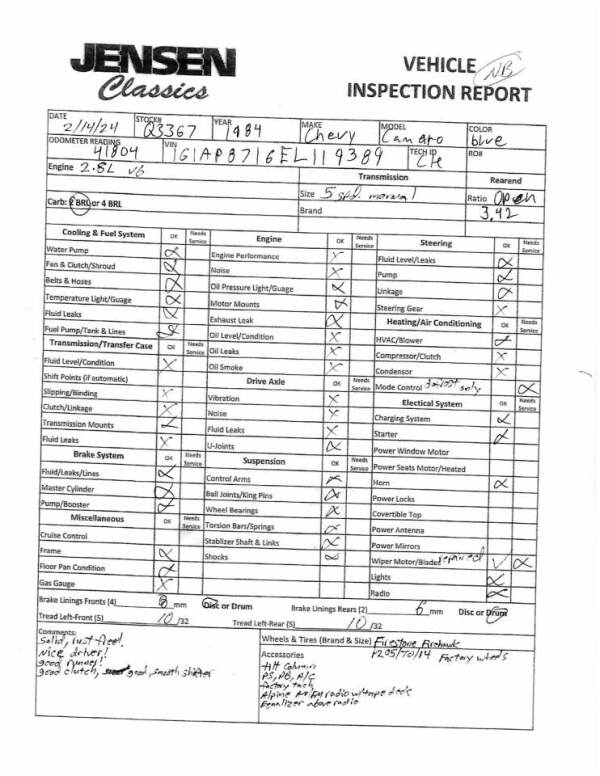 JENSEN
Classics
VEHICLE NB
INSPECTION REPORT
DATE 2/14/24 STOCK# Q3367 YEAR 1984 MAKE Chevy MODEL Camaro COLOR blue
ODOMETER READING 41804 VIN 1G1AP8716EL119389 TECH ID RO#
Engine 2.8L V6 Transmission Rearend
Size 5 spd. manual Ratio open
Carb: 2 BRL or 4 BRL Brand 3,42
Cooling & Fuel System OK Needs Service
Water Pump
Fan & Clutch/Shroud
Belts & Hoses
Temperature Light/Guage
Fluid Leaks
Fuel Pump/Tank & Lines
Transmission/Transfer Case OK Needs Service
Fluid Level/Condition
Shift Points (if automatic)
Slipping/Binding
Clutch/Linkage
Transmission Mounts
Fluid Leaks
Brake System OK Needs Service
Fluid/Leaks/Lines
Master Cylinder
Pump/Booster
Miscellaneous OK Needs Service
Cruise Control
Frame
Floor Pan Condition
Gas Gauge
Engine OK Needs Service
Engine Performance
Noise
Oil Pressure Light/Guage
Motor Mounts
Exhaust Leak
Oil Level/Condition
Oil Leaks
Oil Smoke
Drive Axle OK Needs Service
Vibration
Noise
Fluid Leaks
U-Joints
Suspension OK Needs Service
Control Arms
Ball Joints/King Pins
Wheel Bearings
Torsion Bars/Springs
Stablizer Shaft & Links
Shocks
Steering OK Needs Service
Fluid Level/Leaks
Pump
Linkage
Steering Gear
Heating/Air Conditioning OK Needs Service
HVAC/Blower
Compressor/Clutch
Condensor
Mode Control only
Electical System OK Needs Service
Charging System
Starter
Power Window Motor
Power Seats Motor/Heated
Horn
Power Locks
Covertible Top
Power Antenna
Power Mirrors
Wiper Motor/Blades repaired
Lights
Radio
Brake Linings Frunts (4) 8 mm Disc or Drum Brake Linings Rears (2) 6 mm Disc or Drum
Tread Left-Front (5) 10 /32 Tread Left-Rear (5) 10 /32
Comments:
Solid, rust free!
Nice driver!
good runner!
good clutch, good, smooth shifter
Wheels & Tires (Brand & Size) Firestone Firehawk
P205/70/14 Factory wheels
Accessories
tilt column
PS, PB, A/C
factory tach
Alpine Am/Fm radio w/tape deck
Equalizer above radio